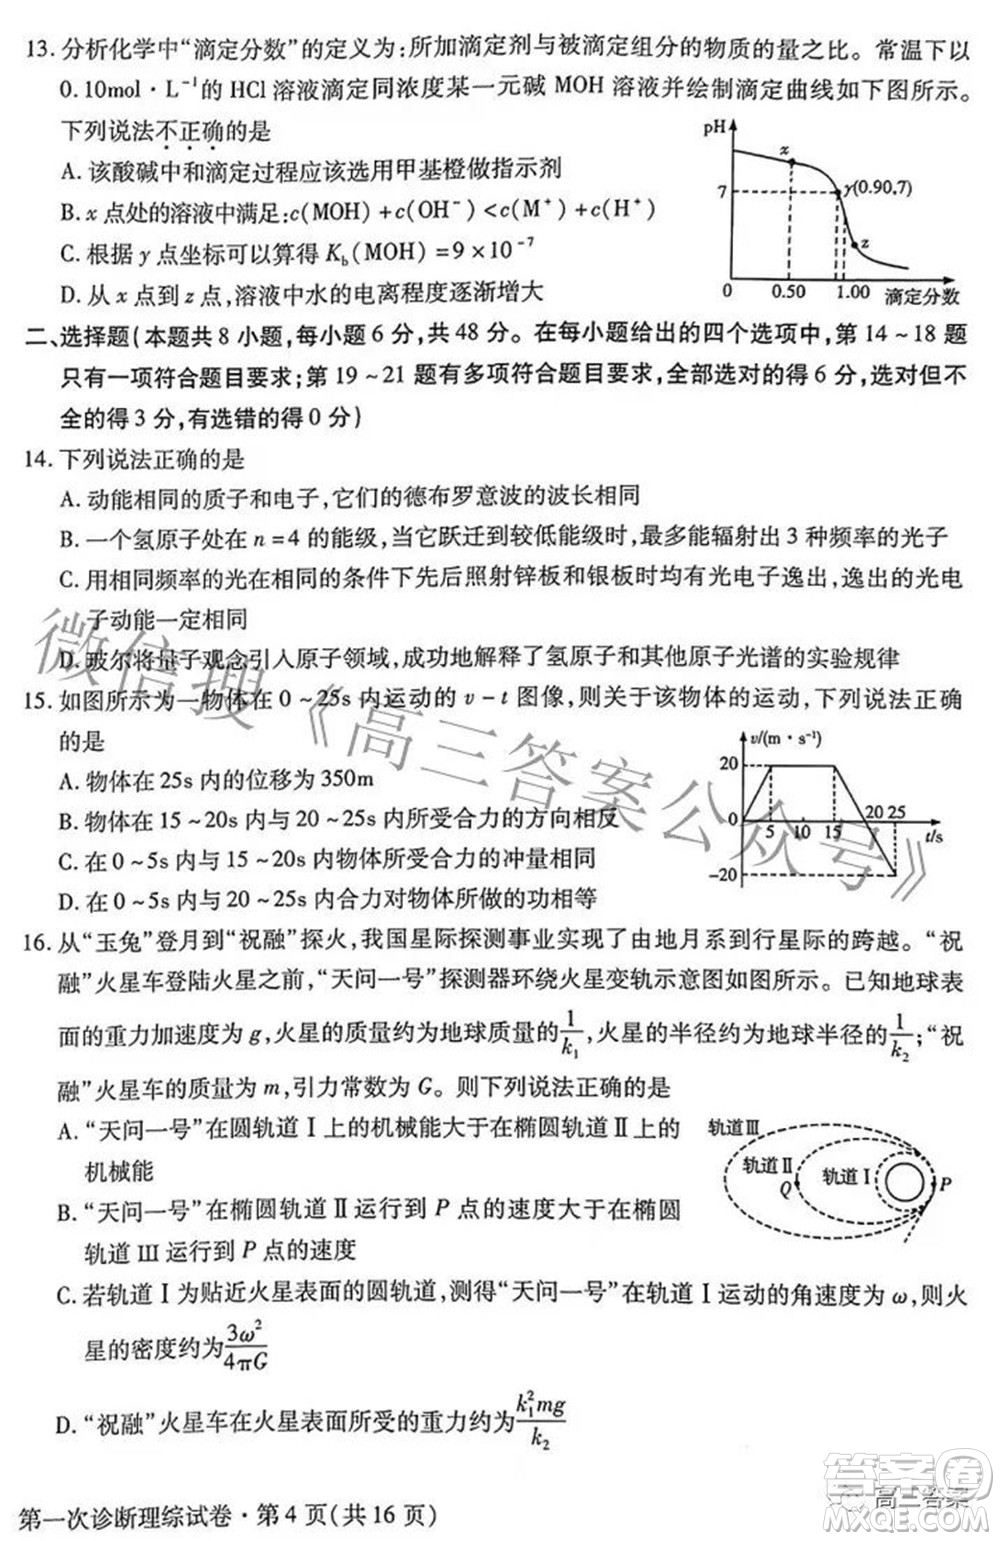 13. 分析化学中“滴定分数”的定义为:所加滴定剂与被滴定组分的物质的量之比。常温下以
0.10mol·L⁻¹的 HCl 溶液滴定同浓度某一元碱 MOH 溶液并绘制滴定曲线如下图所示。
下列说法不正确的是
A. 该酸碱中和滴定过程应该选用甲基橙做指示剂
B. x 点处的溶液中满足:c(MOH)+c(OH⁻)<c(M⁺)+c(H⁺)
C. 根据 y 点坐标可以算得 K_b(MOH)=9×10⁻⁷
D. 从 x 点到 z 点,溶液中水的电离程度逐渐增大
pH
x
7
y(0.90,7)
z
0 0.50 1.00 滴定分数
二、选择题(本题共 8 小题,每小题 6 分,共 48 分。在每小题给出的四个选项中,第 14～18 题
只有一项符合题目要求;第 19～21 题有多项符合题目要求,全部选对的得 6 分,选对但不
全的得 3 分,有选错的得 0 分)
14. 下列说法正确的是
A. 动能相同的质子和电子,它们的德布罗意波的波长相同
B. 一个氢原子处在 n=4 的能级,当它跃迁到较低能级时,最多可辐射出 3 种频率的光子
C. 用相同频率的光在相同的条件下先后照射锌板和银板时均有光电子逸出,逸出的光电
子动能一定相同
D. 玻尔将量子观念引入原子领域,成功地解释了氢原子和其他原子光谱的实验规律
15. 如图所示为一物体在 0～25s 内运动的 v-t 图像,则关于该物体的运动,下列说法正确
的是
A. 物体在 25s 内的位移为 350m
B. 物体在 15～20s 内与 20～25s 内所受合力的方向相反
C. 在 0～5s 内与 15～25s 内物体所受合力的冲量相同
D. 在 0～5s 内与 20～25s 内合力对物体所做的功相等
v/(m·s⁻¹)
20
0 5 10 15 20 25
t/s
-20
16. 从“玉兔”登月到“祝融”探火,我国星际探测事业实现了由地月系到行星际的跨越。“祝
融”火星车登陆火星之前,“天问一号”探测器环绕火星变轨示意图如图所示。已知地球表
面的重力加速度为 g,火星的质量约为地球质量的1/k₁,火星的半径约为地球半径的1/k₂;“祝
融”火星车的质量为 m,引力常数为 G。则下列说法正确的是
A. “天问一号”在圆轨道Ⅰ上的机械能大于在椭圆轨道Ⅱ上的
机械能
B. “天问一号”在椭圆轨道Ⅱ运行到 P 点的速度大于在椭圆
轨道Ⅲ运行到 P 点的速度
轨道Ⅲ
轨道Ⅱ
轨道Ⅰ
Q
P
C. 若轨道Ⅰ为贴近火星表面的圆轨道,测得“天问一号”在轨道Ⅰ运动的角速度为 ω,则火
星的密度约为3ω²/4πG
D. “祝融”火星车在火星表面所受的重力约为k₁²mg/k₂
第一次诊断理综试卷·第 4 页(共 16 页)
微信搜《高三答案公众号》
答案卷
高三答案
MXQE.COM